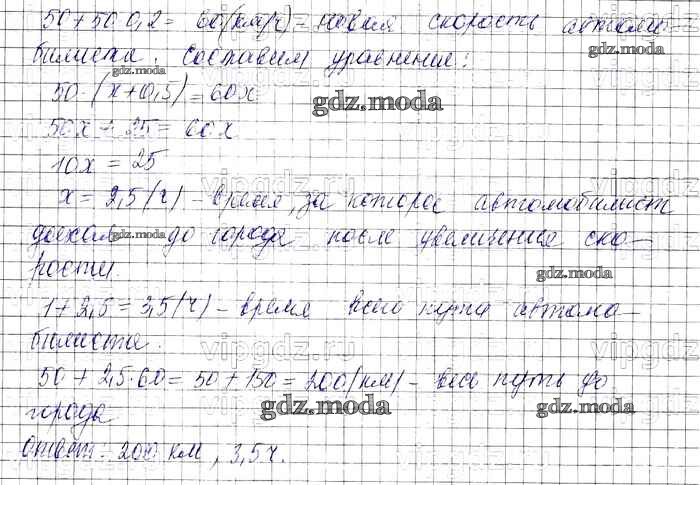 50+50·0,2= 60(км/ч)-новая скорость автомо-
билиста. Составим уравнение:
50·(x+0,5)=60x
50x+25=60x
10x=25
x=2,5(ч)-время, за которое автомобилист
доехал до города после увеличения ско-
рости.
1+2,5=3,5(ч)-время всего пути автомо-
билиста.
50+2,5·60=50+150=200(км)-весь путь до
города
Ответ: 200 км, 3,5ч.
gdz.moda
gdz.moda
gdz.moda
gdz.moda
gdz.moda
gdz.moda
gdz.moda
vipgdz.ru
vipgdz.ru
vipgdz.ru